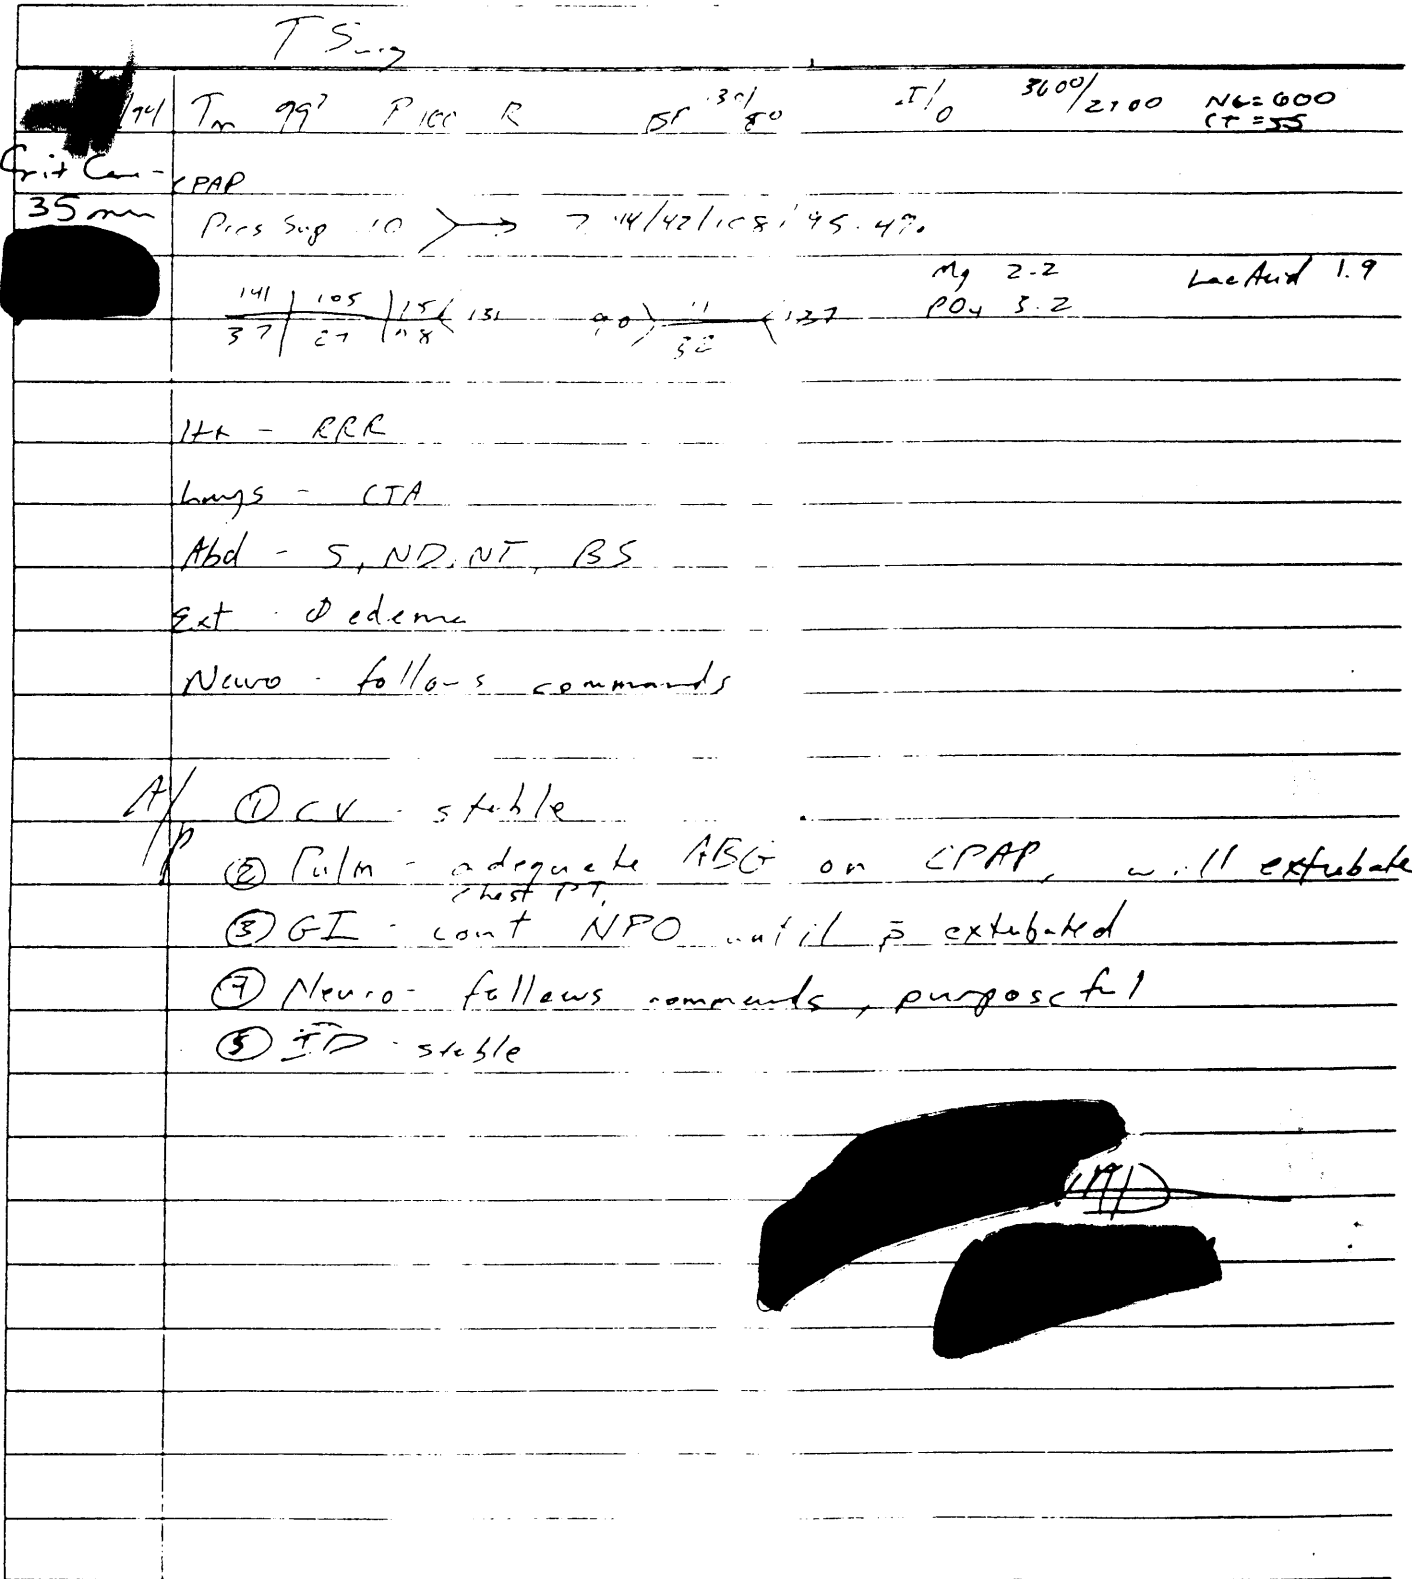 T Surg
/94 Tm 99² P 100 R BP 130/80 I/O 3600/2100 NG=600
CT=55
Crit Care - CPAP
35 min Pres Sup 10 → 7.44/42/108/95.4%
Mg 2.2 Lac Acid 1.9
141 105 15 131 9.0 11 137 PO4 3.2
3.7 27 0.8 32
Hrt - RRR
Lungs - CTA
Abd - S, ND, NT, BS
Ext - Ø edema
Neuro - follows commands
A/P ① CV - stable
② Pulm - adequate ABG on CPAP, will extubate
chest PT,
③ GI - cont NPO until p̄ extubated
④ Neuro - follows commands, purposeful
⑤ ID - stable
MD